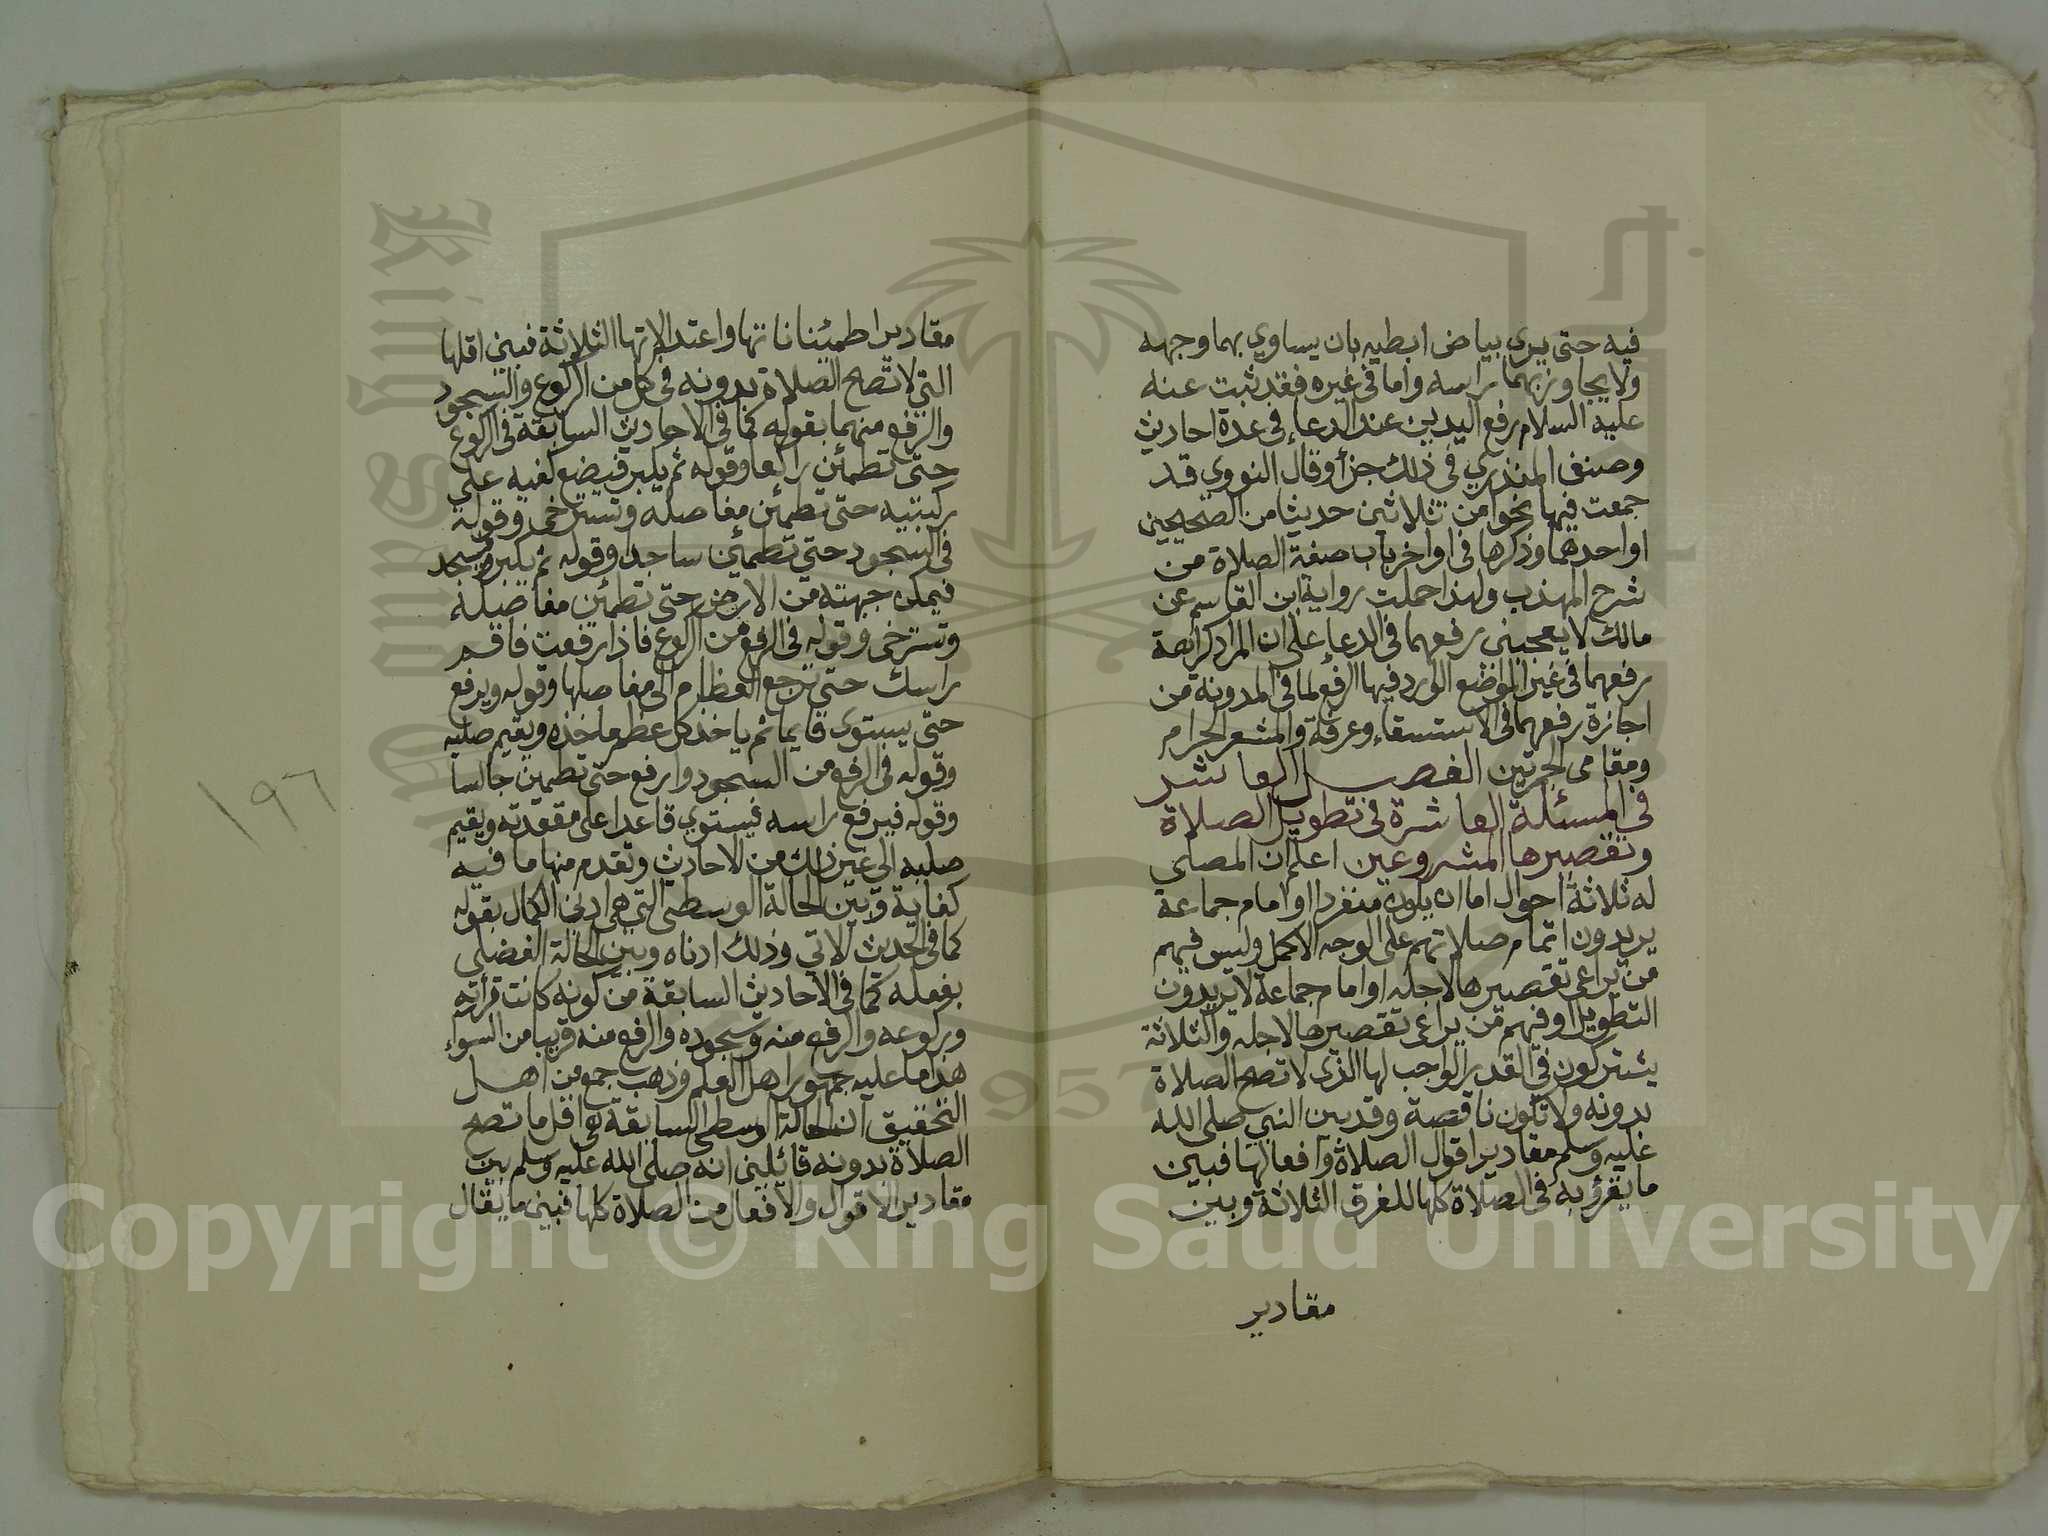 فيه حتى يرى بياض ابطيه بان يساوي بهما وجهه
ولا يجاوز بهما راسه واما في غيره فقد ثبت عنه
عليه السلام رفع اليدين عند الدعاء في عدة احاديث
وصنف المنذري في ذلك جزأ وقال النووي قد
جمعت فيها نحوا من ثلاثين حديثا من الصحيحين
او احدهما وذكرها في اواخر باب صفة الصلاة من
شرح المهذب ولهذا حملت رواية ابن القاسم عن
مالك لا يعجبنى رفعهما في الدعاء على ان المراد كراهة
رفعهما في غير المواضع الوارد فيها الرفع لما في المدونة من
اجازة رفعهما في الاستسقاء وعرفة والمشعر الحرام
ومقامى الجمرتين الفصل العاشر
في المسئلة العاشرة في تطويل الصلاة
وتقصيرها المشروعين اعلم ان المصلي
له ثلاثة احوال اما ان يكون منفردا او امام جماعة
يريدون اتمام صلاتهم على الوجه الاكمل وليس فيهم
من يراعى تقصيرها لاجله او امام جماعة لا يريدون
التطويل او فيهم من يراعى تقصيرها لاجله والثلاثة
يشتركون في القدر الواجب لها الذى لا تصح الصلاة
بدونه ولا تكون ناقصة وقد بين النبي صلى الله
عليه وسلم مقادير اقوال الصلاة وافعالها فبين
ما يقرؤ به في الصلاة كلها للفرق الثلاثة وبين
مقادير
مقادير اطمئناناتها واعتدالاتها الثلاثة فبين اقلها
التي لا تصح الصلاة بدونه في كل من الركوع والسجود
والرفع منهما بقوله كما في الاحاديث السابقة في الركوع
حتى تطمئن راكعا وقوله ثم يكبر فيضع كفيه على
ركبتيه حتى تطمئن مفاصله وتسترخى وقوله
في السجود حتي تطمئن ساجدا وقوله ثم يكبر فيسجد
فيمكن جبهته من الارض حتى تطمئن مفاصله
وتسترخى وقوله في الرفع من الركوع فاذا رفعت فاقم
راسك حتى ترجع العظام الى مفاصلها وقوله ويرفع
حتى يستوى قايما ثم ياخذ كل عظم ماخذه ويقيم صلبه
وقوله في الرفع من السجود وارفع حتى تطمين جالسا
وقوله فيرفع راسه فيستوي قاعدا على مقعدته ويقيم
صلبه الى غير ذلك من الاحاديث وتقدم منها ما فيه
كفاية وبين الحالة الوسطى التي هي ادنى الكمال بقوله
كما في الحديث الاتي وذلك ادناه وبين الحالة الفضلى
بفعله كما في الاحاديث السابقة من كونه كانت قرأته
وركوعه والرفع منه وسجوده والرفع منه قريبا من السواء
هذا ما عليه جمهور اهل العلم وذهب جمع من اهل
التحقيق ان الحالة الوسطى السابقة هي اقل ما تصح
الصلاة بدونه قائلين انه صلى الله عليه وسلم بين
مقادير الاقوال والافعال من الصلاة كلها فبين ما يقال
١٩٦
King Saud University
1957
Copyright © King Saud University